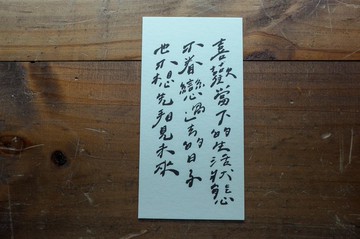 喜歡當下的生活狀態
不眷戀過去的日子
也不想先預見未來